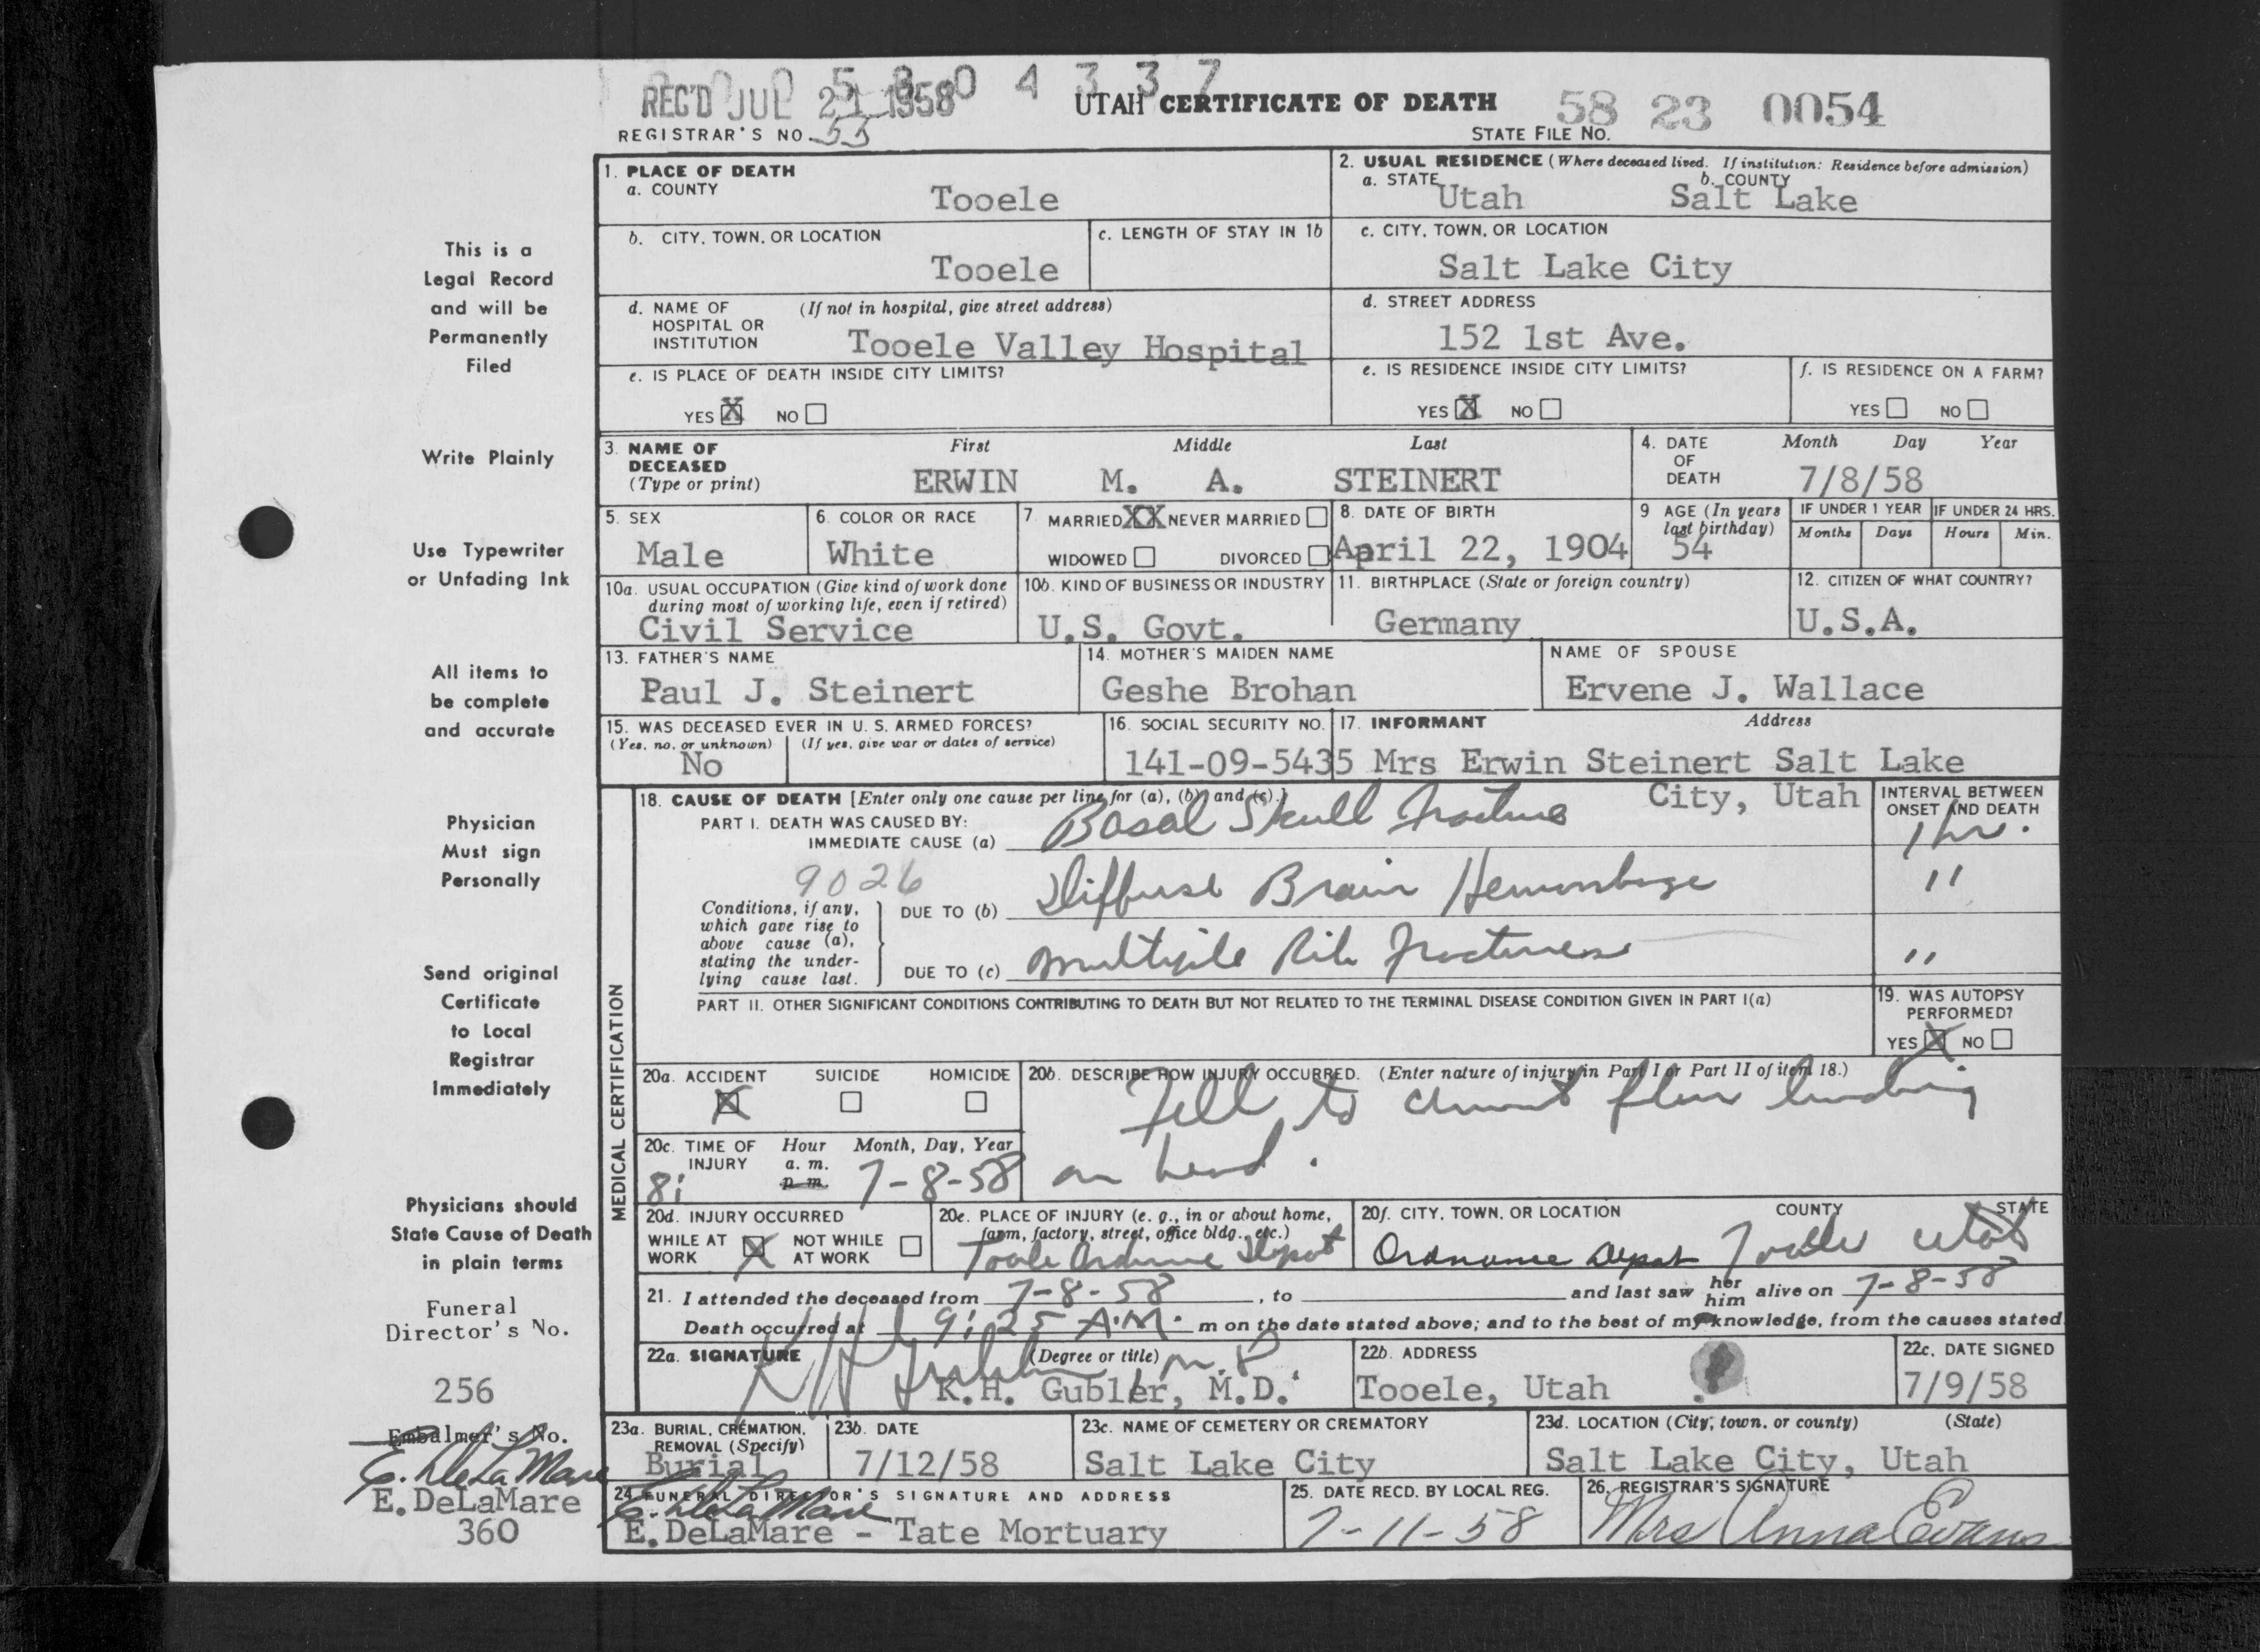 0 0 0 5 8 0 4 3 3 7
REC'D JUL 21 1958
UTAH CERTIFICATE OF DEATH
58 23 0054
REGISTRAR'S NO. 53
STATE FILE NO.
1. PLACE OF DEATH
a. COUNTY
Tooele
2. USUAL RESIDENCE (Where deceased lived. If institution: Residence before admission)
a. STATE
Utah
b. COUNTY
Salt Lake
b. CITY, TOWN, OR LOCATION
Tooele
c. LENGTH OF STAY IN 1b
c. CITY, TOWN, OR LOCATION
Salt Lake City
d. NAME OF HOSPITAL OR INSTITUTION
(If not in hospital, give street address)
Tooele Valley Hospital
d. STREET ADDRESS
152 1st Ave.
e. IS PLACE OF DEATH INSIDE CITY LIMITS?
YES X NO
e. IS RESIDENCE INSIDE CITY LIMITS?
YES X NO
f. IS RESIDENCE ON A FARM?
YES NO
3. NAME OF DECEASED (Type or print)
First Middle Last
ERWIN M. A. STEINERT
4. DATE OF DEATH
Month Day Year
7/8/58
5. SEX
Male
6. COLOR OR RACE
White
7. MARRIED XX NEVER MARRIED
WIDOWED DIVORCED
8. DATE OF BIRTH
April 22, 1904
9 AGE (In years last birthday)
54
IF UNDER 1 YEAR
Months Days
IF UNDER 24 HRS.
Hours Min.
10a. USUAL OCCUPATION (Give kind of work done during most of working life, even if retired)
Civil Service
10b. KIND OF BUSINESS OR INDUSTRY
U.S. Govt.
11. BIRTHPLACE (State or foreign country)
Germany
12. CITIZEN OF WHAT COUNTRY?
U.S.A.
13. FATHER'S NAME
Paul J. Steinert
14. MOTHER'S MAIDEN NAME
Geshe Brohan
NAME OF SPOUSE
Ervene J. Wallace
15. WAS DECEASED EVER IN U. S. ARMED FORCES?
(Yes, no, or unknown) (If yes, give war or dates of service)
No
16. SOCIAL SECURITY NO.
141-09-5435
17. INFORMANT Address
Mrs Erwin Steinert Salt Lake
City, Utah
MEDICAL CERTIFICATION
18. CAUSE OF DEATH [Enter only one cause per line for (a), (b) and (c).]
INTERVAL BETWEEN ONSET AND DEATH
PART I. DEATH WAS CAUSED BY:
IMMEDIATE CAUSE (a) Basal Skull fracture
1 hr.
9026
Conditions, if any, which gave rise to above cause (a), stating the underlying cause last.
DUE TO (b) Diffuse Brain Hemorrhage
"
DUE TO (c) multiple Rib fractures
"
PART II. OTHER SIGNIFICANT CONDITIONS CONTRIBUTING TO DEATH BUT NOT RELATED TO THE TERMINAL DISEASE CONDITION GIVEN IN PART I(a)
19. WAS AUTOPSY PERFORMED?
YES X NO
20a. ACCIDENT SUICIDE HOMICIDE
X
20b. DESCRIBE HOW INJURY OCCURRED. (Enter nature of injury in Part I or Part II of item 18.)
Fell to cement floor landing
on head.
20c. TIME OF INJURY
Hour Month, Day, Year
a. m.
p. m.
8: 7-8-58
20d. INJURY OCCURRED
WHILE AT WORK X NOT WHILE AT WORK
20e. PLACE OF INJURY (e. g., in or about home, farm, factory, street, office bldg., etc.)
Tooele Ordnance Depot
20f. CITY, TOWN, OR LOCATION COUNTY STATE
Ordnance Depot Tooele Utah
21. I attended the deceased from 7-8-58, to and last saw her him alive on 7-8-58
Death occurred at 9:25 A.M. m on the date stated above; and to the best of my knowledge, from the causes stated.
22a. SIGNATURE (Degree or title)
K H Gubler M.D
K.H. Gubler, M.D.
22b. ADDRESS
Tooele, Utah
22c. DATE SIGNED
7/9/58
23a. BURIAL, CREMATION, REMOVAL (Specify)
Burial
23b. DATE
7/12/58
23c. NAME OF CEMETERY OR CREMATORY
Salt Lake City
23d. LOCATION (City, town, or county) (State)
Salt Lake City, Utah
24. FUNERAL DIRECTOR'S SIGNATURE AND ADDRESS
E. DeLaMare
E. DeLaMare - Tate Mortuary
25. DATE RECD. BY LOCAL REG.
7-11-58
26. REGISTRAR'S SIGNATURE
Mrs Anna Evans
This is a
Legal Record
and will be
Permanently
Filed
Write Plainly
Use Typewriter
or Unfading Ink
All items to
be complete
and accurate
Physician
Must sign
Personally
Send original
Certificate
to Local
Registrar
Immediately
Physicians should
State Cause of Death
in plain terms
Funeral
Director's No.
256
Embalmer's No.
E. DeLaMare
E. DeLaMare
360